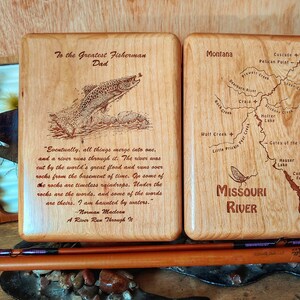 To the Greatest Fisherman
Dad
"Eventually, all things merge into one,
and a river runs through it. The river was
cut by the world's great flood and runs over
rocks from the basement of time. On some of
the rocks are timeless raindrops. Under the
rocks are the words, and some of the words
are theirs. I am haunted by waters."
-Norman Maclean
A River Run Through It
Montana
Cascade
Pelican Point
Craig
Holter
Lake
Wolf Creek
Hauser
Lake
Missouri
River